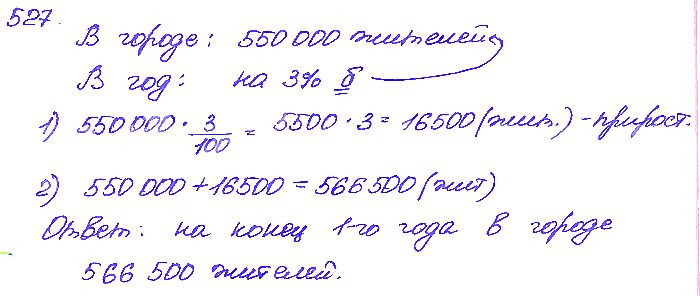 527.
В городе: 550 000 жителей
В год: на 3% б
1) 550000 · 3/100 = 5500 · 3 = 16500 (жит.) - прирост.
2) 550 000 + 16500 = 566 500 (жит)
Ответ: на конец 1-го года в городе
566 500 жителей.